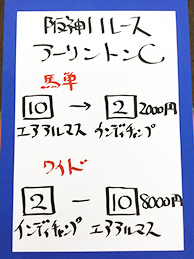 阪神11レース
アーリントンC
馬単
10 → 2 2000円
エアアルマス インディチャンプ
ワイド
2 － 10 8000円
インディチャンプ エアアルマス